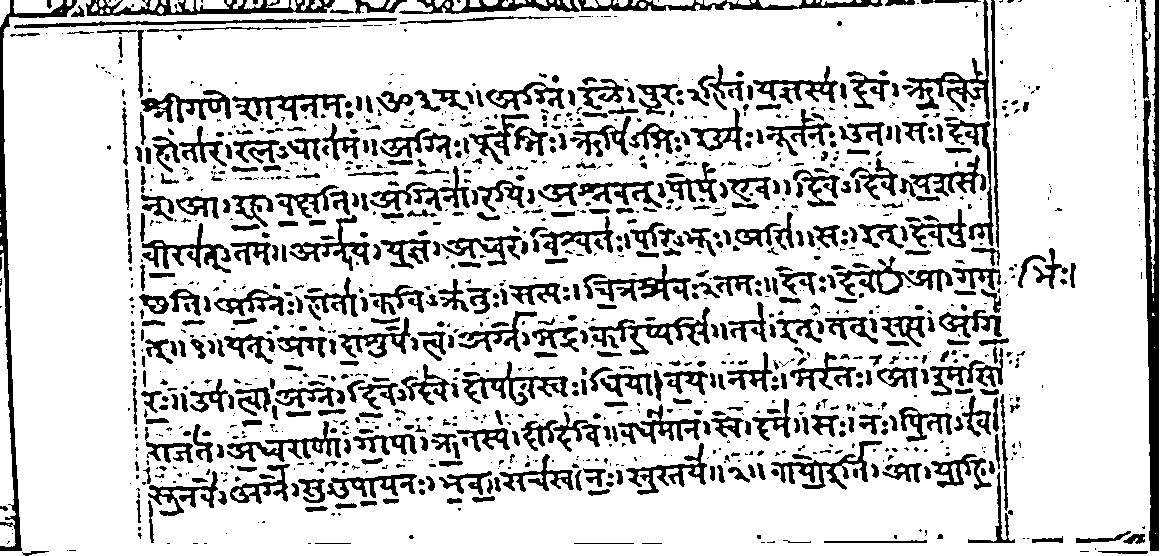 श्रीगणेशायनमः॥ॐ३म्॥अग्निं।ईळे।पुरःऽहितं।यज्ञस्य।देवं।ऋत्विजं
॥होतारं।रत्नऽधातमं॥अग्निः।पूर्वेभिः।ऋषिऽभिः।ईड्यः।नूतनैः।उत॥सः।देवा
न्।आ।इह।वक्षति॥अग्निना।रयिं।अश्नवत्।पोषं।एव।दिवेऽदिवे॥यशसं
वीरवत्ऽतमं॥अग्ने।यं।यज्ञं।अध्वरं।विश्वतः।परिऽभूः।असि॥सः।इत्।देवेषु।ग
छति।अग्निः।होता।कविऽक्रतुः।सत्यः।चित्रश्रवःऽतमः॥देवः।देवे।आ।गम
भिः।
त्॥१॥यत्।अंग।दाशुषे।त्वं।अग्ने।भद्रं।करिष्यसि॥तव।इत्।तत्।सत्यं।अंगि
रः॥उप।त्वा।अग्ने।दिवेऽदिवे।दोषाऽवस्तः।धिया।वयं॥नमः।भरंतः।आ।इमसि
राजंतं।अध्वराणां।गोपां।ऋतस्य।दीदिविं॥वर्धमानं।स्वे।दमे॥सः।नः।पिताऽइव
सूनवे।अग्ने।सुऽउपायनः।भव॥सचस्व।नः।स्वस्तये॥२॥वायो।आ।याहि।